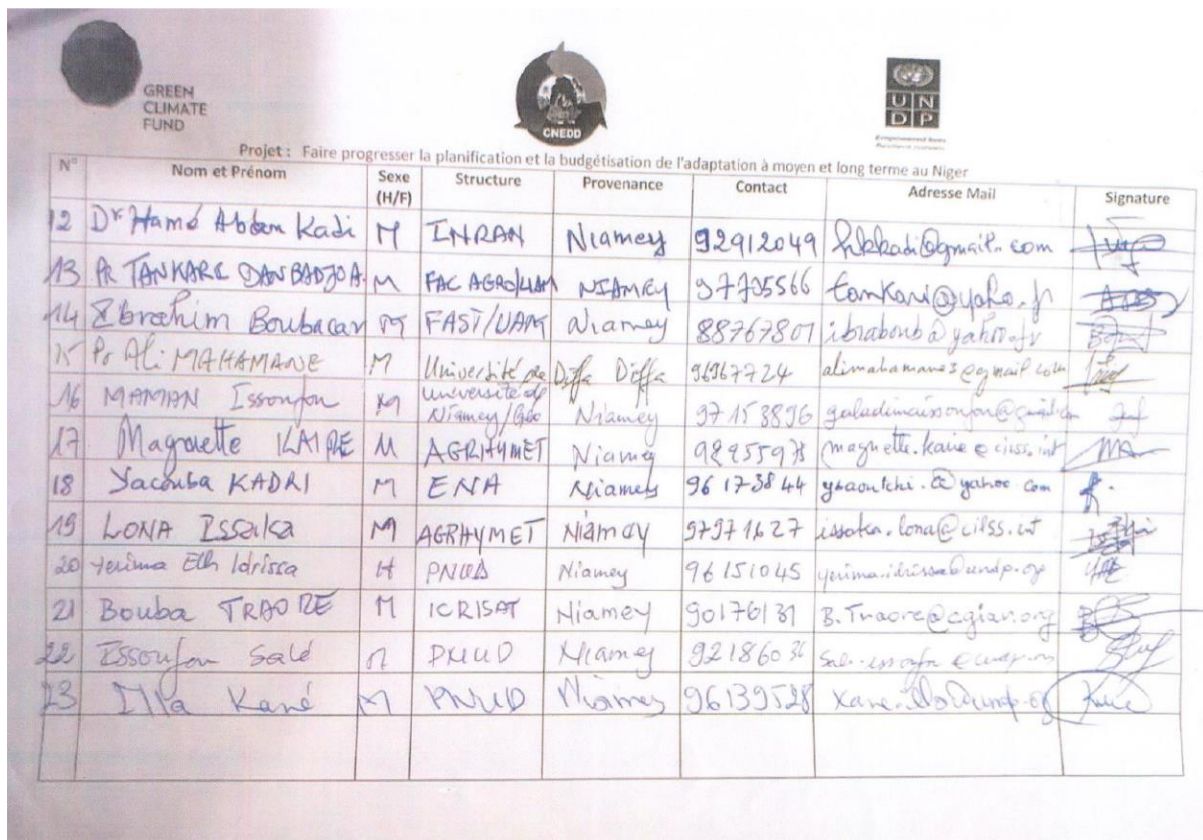 GREEN
CLIMATE
FUND
CNEDD
U N
D P
Projet : Faire progresser la planification et la budgétisation de l'adaptation à moyen et long terme au Niger
N° Nom et Prénom Sexe (H/F) Structure Provenance Contact Adresse Mail Signature
12 Dr Hamé Abdou Kadi M INRAN Niamey 92912049 hkkadi@gmail.com
13 Pr TANKARI DANBADJO A. M FAC AGRO/UAM NIAMEY 97705566
14 Ibrahim Boubacar M FAST/UAM Niamey 88767801 ibraboub@yahoo.fr
15 Pr Ali MAHAMANE M Université de Diffa Diffa 96967724 alimahamane3@gmail.com
16 MAMAN Issoufou M Université de Niamey Niamey 97153896
17 Maguette KAIRE M AGRHYMET Niamey maguette.kaire@cilss.int
18 Yacouba KADRI M ENA Niamey 96173844 @yahoo.com
19 LONA Issaka M AGRHYMET Niamey 97971627 issaka.lona@cilss.int
20 Yerima Elh Idrissa H PNUD Niamey 96151045 yerima.idrissa@undp.org
21 Bouba TRAORE M ICRISAT Niamey 90176131 B.Traore@cgiar.org
22 Issoufou Salé M PNUD Niamey 92186036
23 Illa Kané M PNUD Niamey 96139528